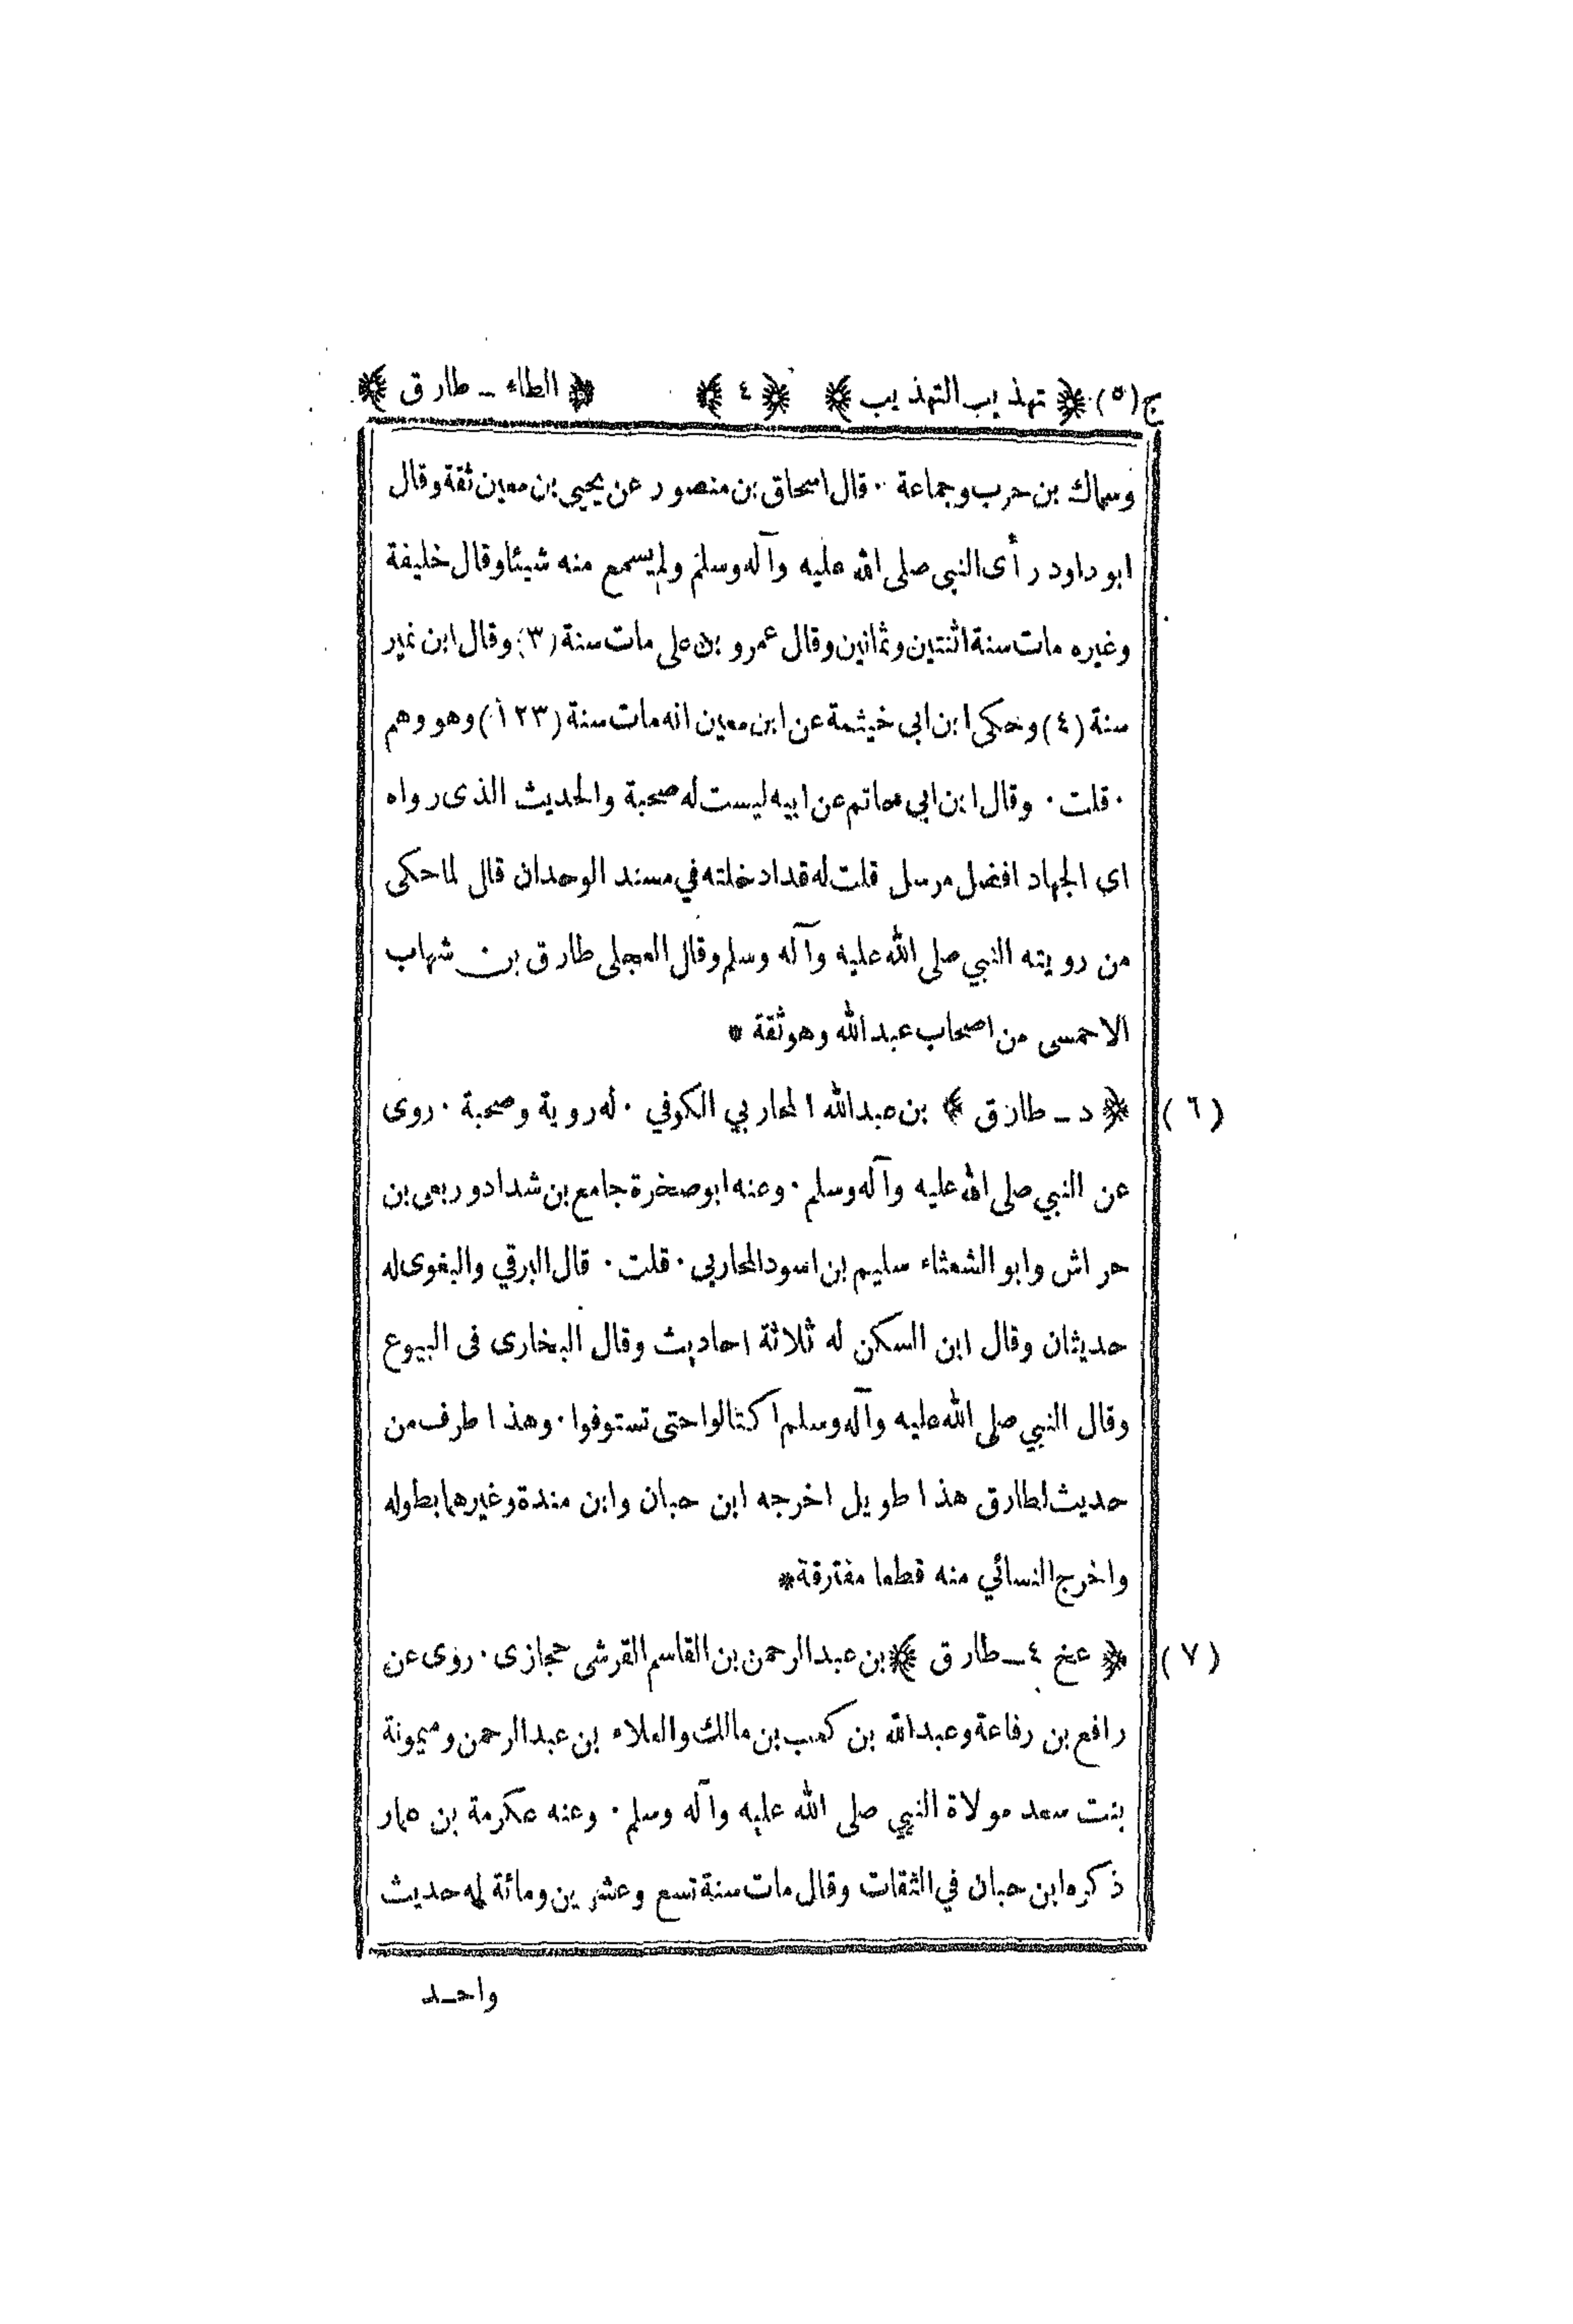 ج(٥) ﴿ تهذيب التهذيب ﴾ ﴿ ٤ ﴾ ﴿ الطاء ـ طارق ﴾
وسماك بن حرب وجماعة ٠ قال اسحاق بن منصور عن يحيى بن معين ثقة وقال
ابو داود رأى النبي صلى الله عليه وآله وسلم ولم يسمع منه شيئا وقال خليفة
وغيره مات سنة اثنتين وثمانين وقال عمرو بن على مات سنة (٣) وقال ابن نمير
سنة (٤) وحكى ابن ابي خيثمة عن ابن معين انه مات سنة (١٢٣) وهو وهم
٠ قلت ٠ وقال ابن ابي حاتم عن ابيه ليست له صحبة والحديث الذى رواه
اى الجهاد افضل مرسل قلت له قد ادخلته في مسند الوحدان قال لما حكى
من رويته النبي صلى الله عليه وآله وسلم وقال العجلى طارق بن شهاب
الاحمسى من اصحاب عبد الله وهو ثقة *
(٦) ﴿ د ـ طارق ﴾ بن عبد الله المحاربي الكوفي ٠ له روية وصحبة ٠ روى
عن النبي صلى الله عليه وآله وسلم ٠ وعنه ابو صخرة جامع بن شداد وربعى بن
حراش وابو الشعثاء سليم بن اسود المحاربي ٠ قلت ٠ قال البرقي والبغوى له
حديثان وقال ابن السكن له ثلاثة احاديث وقال البخارى فى البيوع
وقال النبي صلى الله عليه وآله وسلم اكتالوا حتى تستوفوا ٠ وهذا طرف من
حديث لطارق هذا طويل اخرجه ابن حبان وابن مندة وغيرهما بطوله
واخرج النسائي منه قطعا مفترقة *
(٧) ﴿ عخ ٤ ـ طارق ﴾ بن عبد الرحمن بن القاسم القرشى حجازى ٠ روى عن
رافع بن رفاعة وعبد الله بن كعب بن مالك والعلاء بن عبد الرحمن وميمونة
بنت سعد مولاة النبي صلى الله عليه وآله وسلم ٠ وعنه عكرمة بن عمار
ذكره ابن حبان في الثقات وقال مات سنة تسع وعشرين ومائة له حديث
واحد